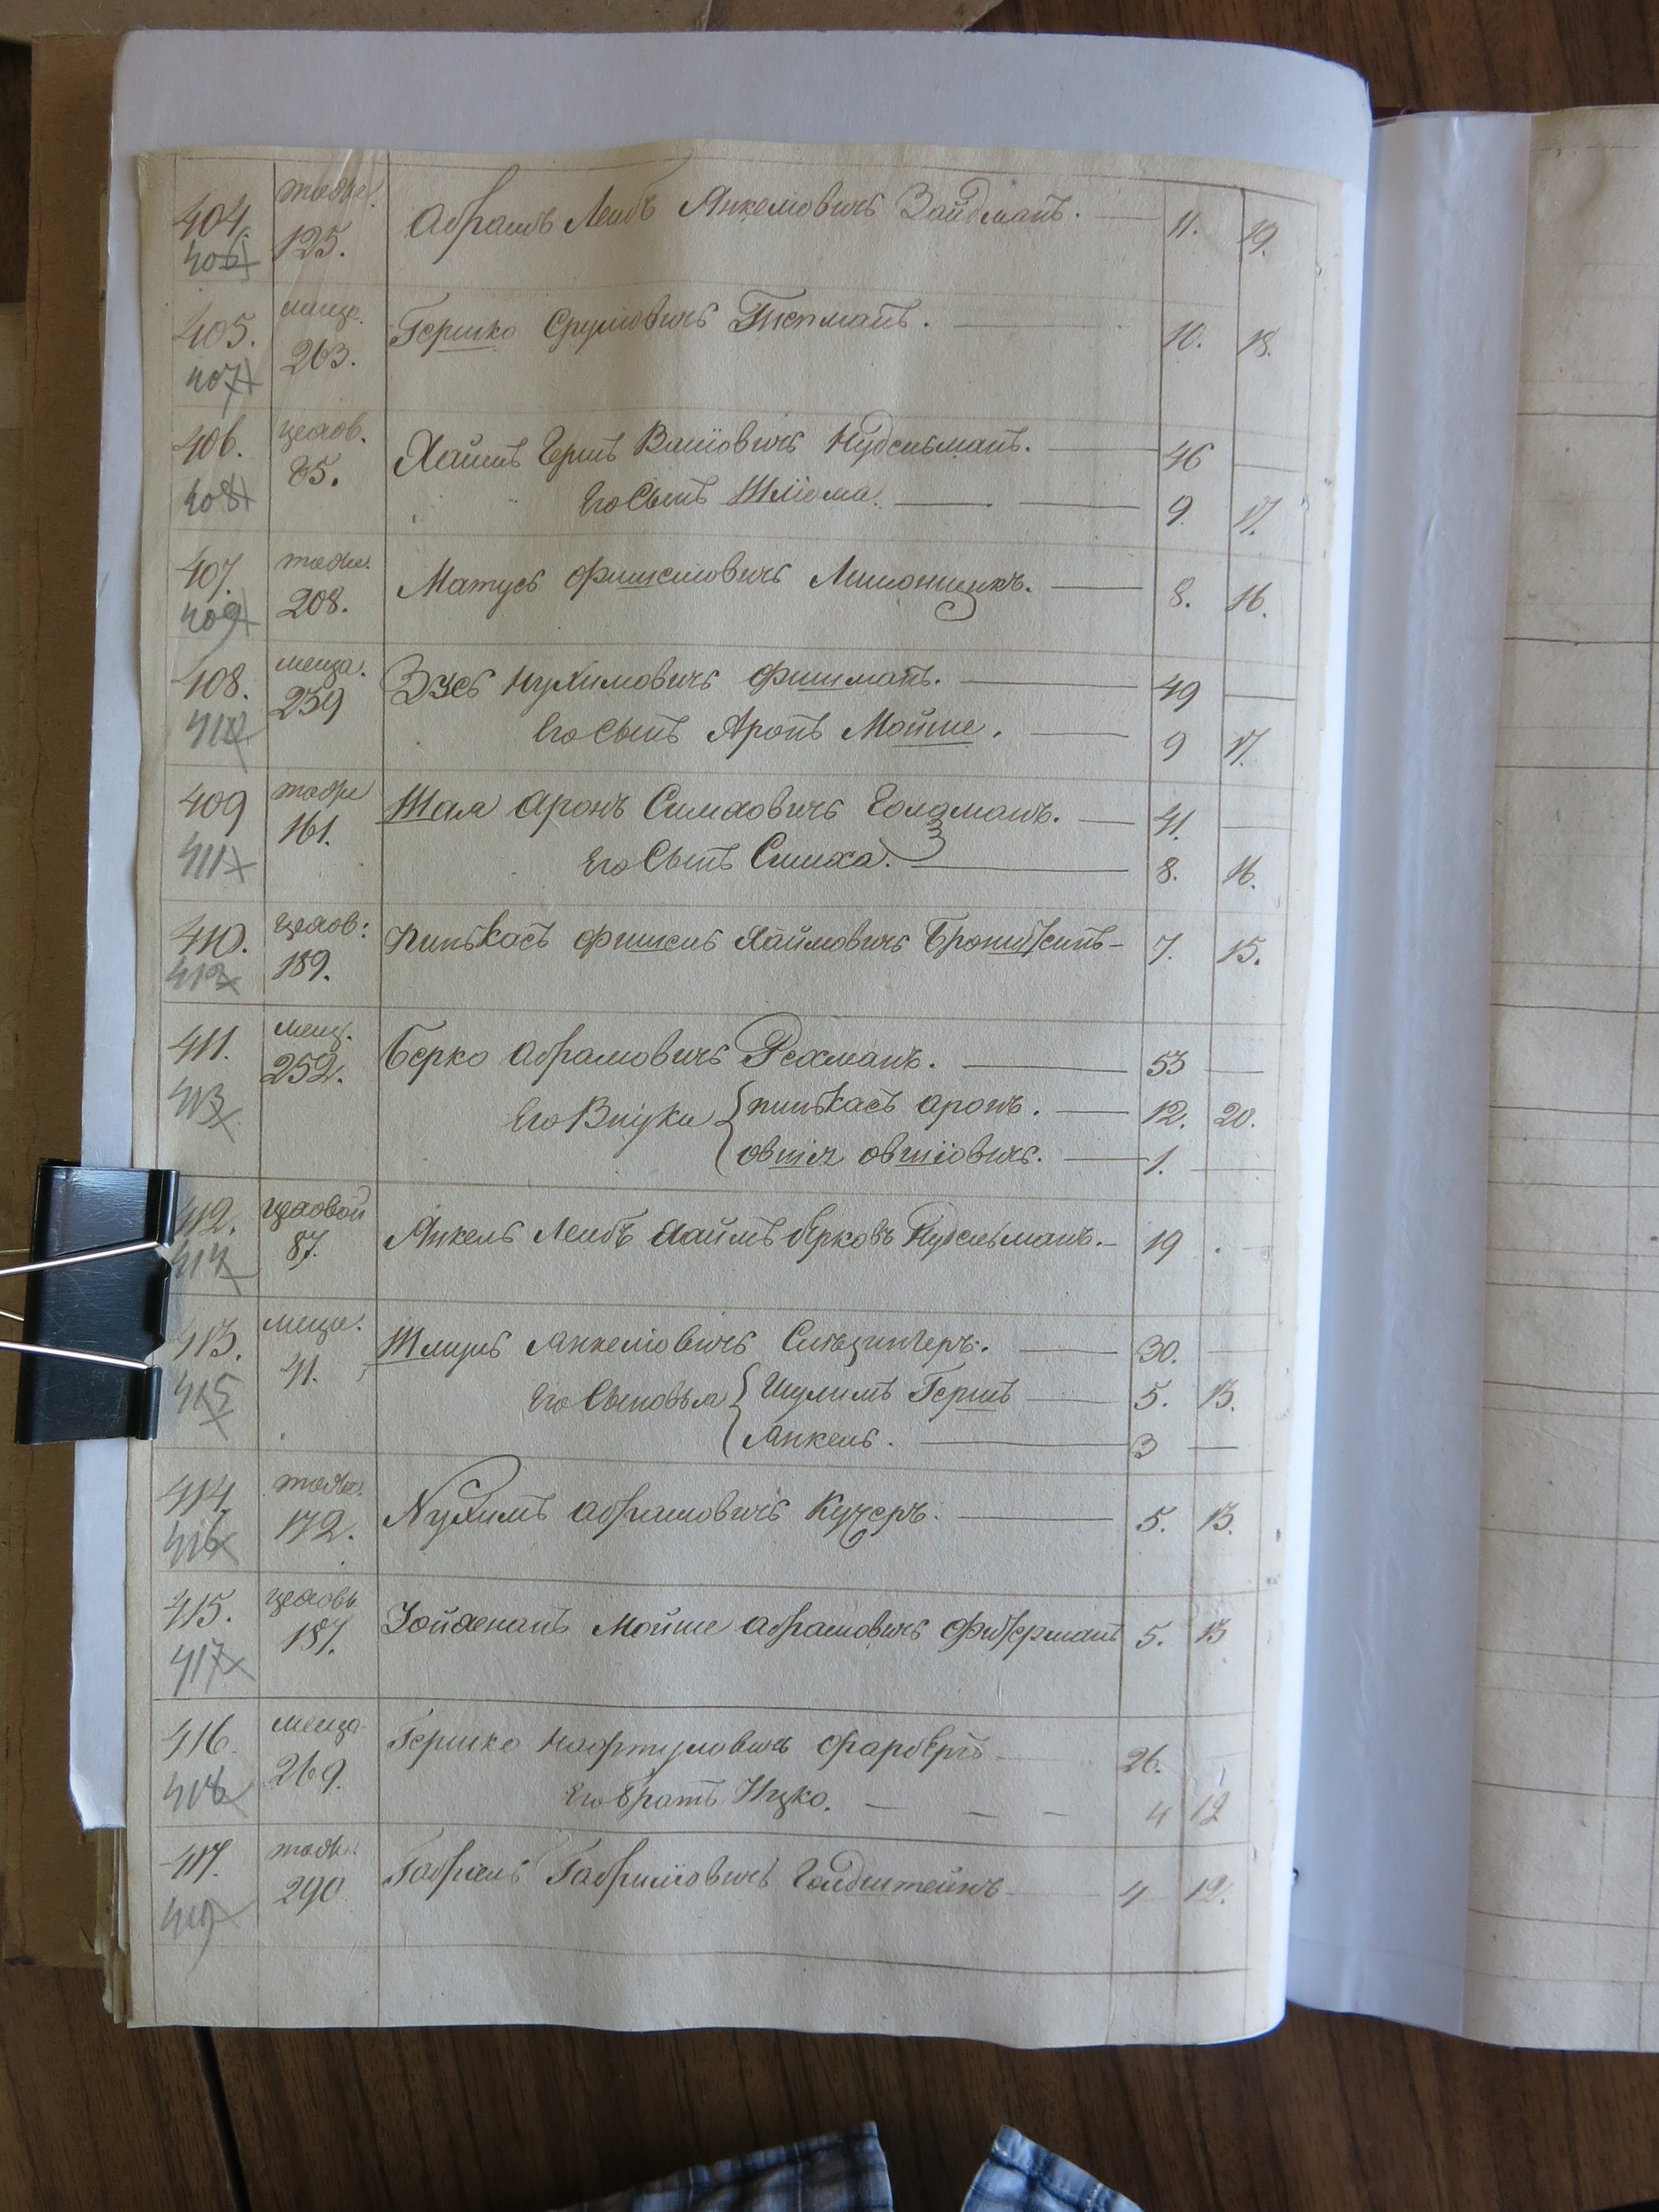 404. тоже. Абрамъ Лейбъ Янкелiовичъ Зайдманъ. 11. 19.
406 125.
405. меща. Гершко Срулiовичъ Гитманъ. 10. 18.
407 263.
406. цехов. Хаимъ Гершъ Волiовичъ Нудельманъ. 46
408 85. Его Сынъ Шлiома. 9. 17.
407. тоже. Матусъ Фишелiовичъ 8. 16.
409 208.
408. меща. Зусь Нухимовичъ Фишманъ. 49
410 259 Его Сынъ Аронъ Мойше. 9 17.
409 тоже Шая Аронъ Симховичъ 41.
411 161. Его Сынъ Симха. 8. 16.
410. цехов: Пинькасъ Фишель Хаймовичъ 7. 15.
412 189.
411. мещ. Берко Абрамовичъ Рехманъ. 53
413 252. Его Внуки Пинькасъ Аронъ. 12. 20.
Овшiя Овшiовичъ. 1.
412. цеховой Янкель Лейбъ Хаимъ Берковъ Нудельманъ. 19
414 87.
413. меща. Шлиома Янкелiовичъ 30.
415 41. Его Сыновья Шулимъ Гершъ 5. 13.
Янкель. 3
414. тоже. Нухимъ Абрамовичъ Кучеръ. 5. 13.
416 172.
415. цеховъ Мойше Абрамовичъ 5. 13
417 187.
416. меща Гершко Нафтуловичъ Фарбергъ 26.
418 269. Его братъ Ицко. 4 12
417. тоже. Габриель Габрилiовичъ Голдштейнъ 4 12.
419 290